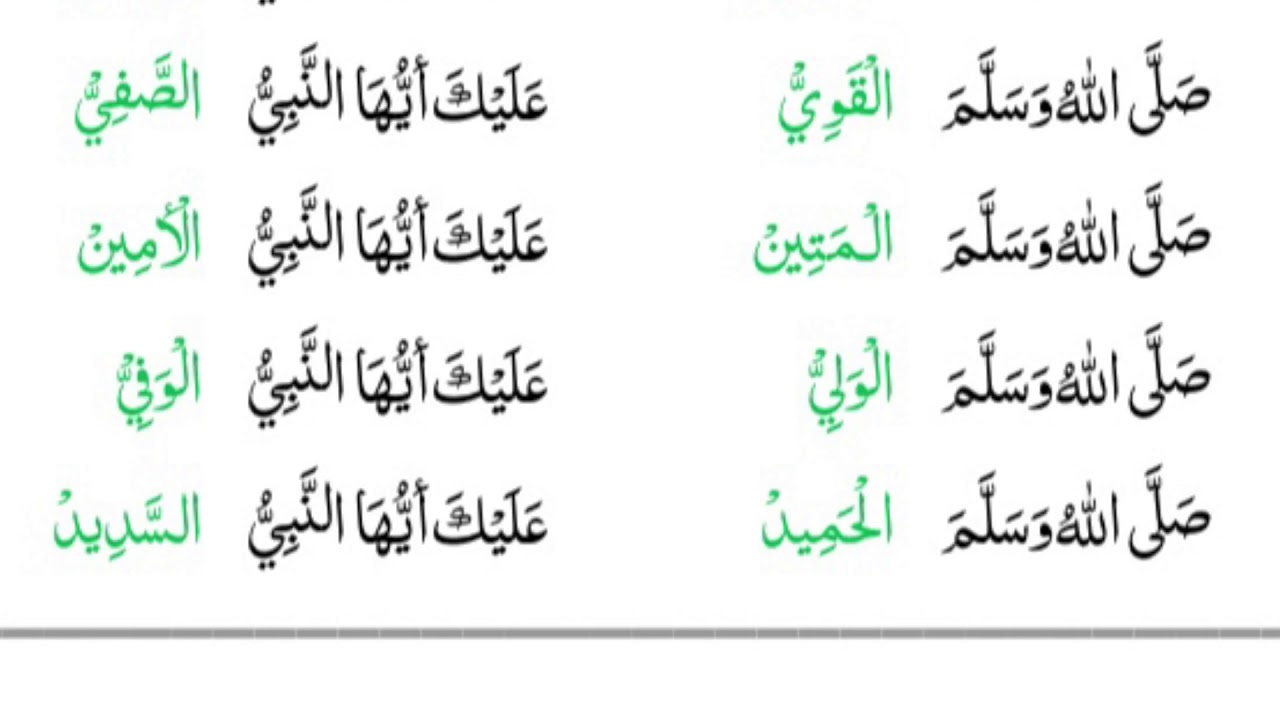 صَلَّى اللهُ وَسَلَّمَ الْقَوِيُّ عَلَيْكَ أَيُّهَا النَّبِيُّ الصَّفِيُّ
صَلَّى اللهُ وَسَلَّمَ الْمَتِينُ عَلَيْكَ أَيُّهَا النَّبِيُّ الْأَمِينُ
صَلَّى اللهُ وَسَلَّمَ الْوَلِيُّ عَلَيْكَ أَيُّهَا النَّبِيُّ الْوَفِيُّ
صَلَّى اللهُ وَسَلَّمَ الْحَمِيدُ عَلَيْكَ أَيُّهَا النَّبِيُّ السَّدِيدُ